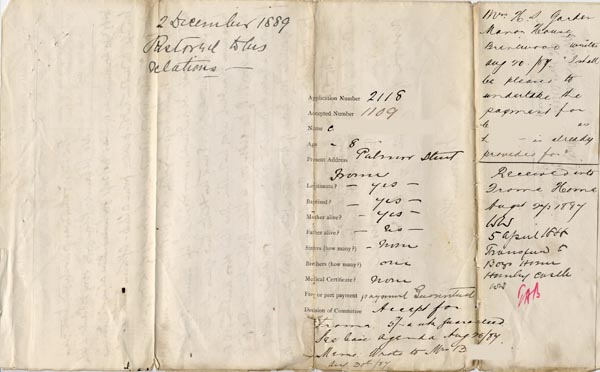 2 December 1889
Restored to his
relations —
Application Number 2118
Accepted Number 1109
Name C
Age - 8 -
Present Address Palmer Street
Frome
Legitimate? - yes -
Baptized? - yes -
Mother alive? - yes -
Father alive? - no -
Sisters (how many?) - none
Brothers (how many?) one
Medical Certificate? none
Free or part payment payment Guaranteed
Decision of Committee Accept for
Frome 5/- a wk guaranteed
See Case Agenda Aug 20/87.
Mem. Wrote to Mrs B
Aug 20th/87
H S
Manor House
Brentwood writes
Aug 20/87 "I shall
be pleased to
undertake the
payment for
as
- is already
provided for"
Received into
Frome Home
Augst 29/1887
5 April 1888
Transferred to
Boys Home
Hanley Castle